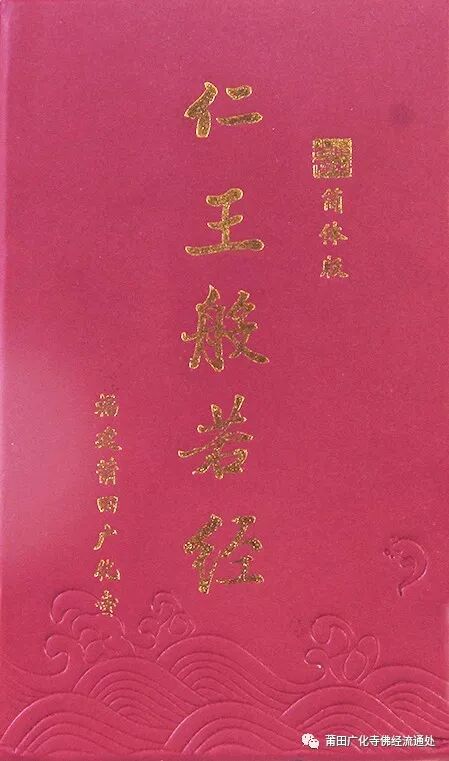 简体版
仁王般若经
福建莆田广化寺
莆田广化寺佛经流通处